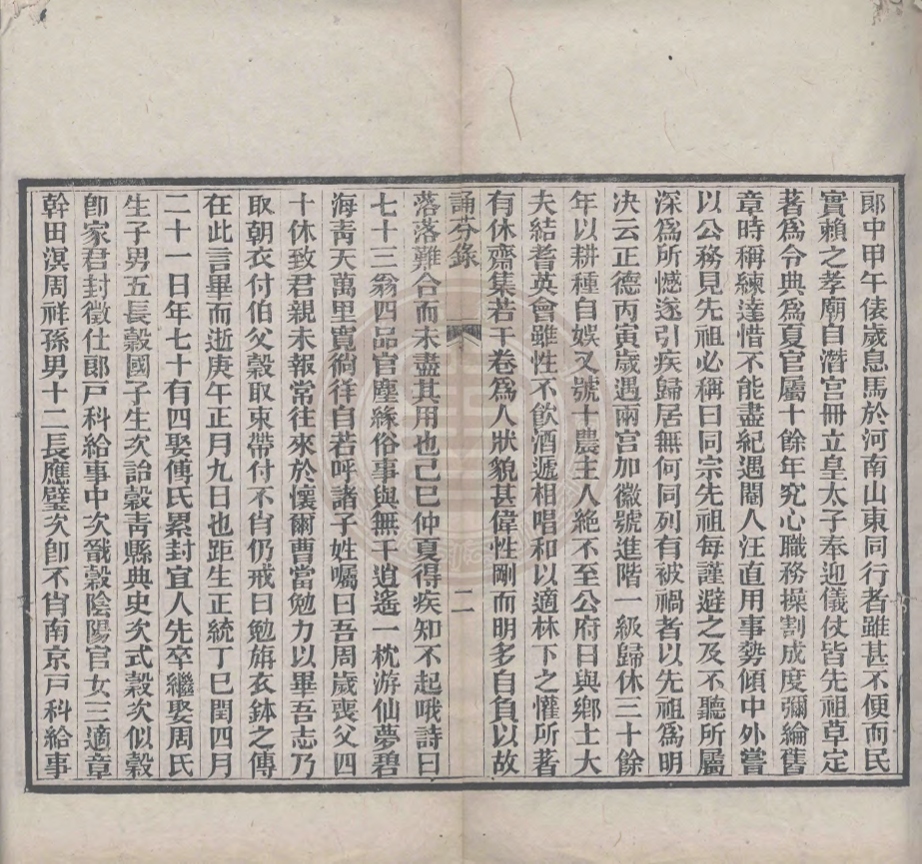 郞中甲午俵歲息馬於河南山東同行者雖甚不便而民
實賴之孝廟自潛宮冊立皇太子奉迎儀仗皆先祖草定
著爲令典爲夏官屬十餘年究心職務操割成度彌綸舊
章時稱練達惜不能盡紀遇閹人汪直用事勢傾中外嘗
以公務見先祖必稱曰同宗先祖每謹避之及不聽所屬
深爲所憾遂引疾歸居無何同列有被禍者以先祖爲明
决云正德丙寅歲遇兩宮加徽號進階一級歸休三十餘
年以耕種自娛又號十農主人絶不至公府日與鄉士大
夫結耆英會雖性不飮酒遞相唱和以適林下之懽所著
有休齋集若干卷爲人狀貌甚偉性剛而明多自負以故
誦芬錄 二
落落難合而未盡其用也己巳仲夏得疾知不起哦詩曰
七十三翁四品官塵緣俗事與無干逍遙一枕游仙夢碧
海靑天萬里寬徜徉自若呼諸子姓囑曰吾周歲喪父四
十休致君親未報常往來於懷爾曹當勉力以畢吾志乃
取朝衣付伯父穀取束帶付不肖仍戒曰勉旃衣鉢之傳
在此言畢而逝庚午正月九日也距生正統丁巳閏四月
二十一日年七十有四娶傅氏累封宜人先卒繼娶周氏
生子男五長穀國子生次詒穀靑縣典史次式穀次似穀
卽家君封徵仕郞戸科給事中次戩穀陰陽官女三適章
幹田溟周祥孫男十二長應璧次卽不肖南京戸科給事